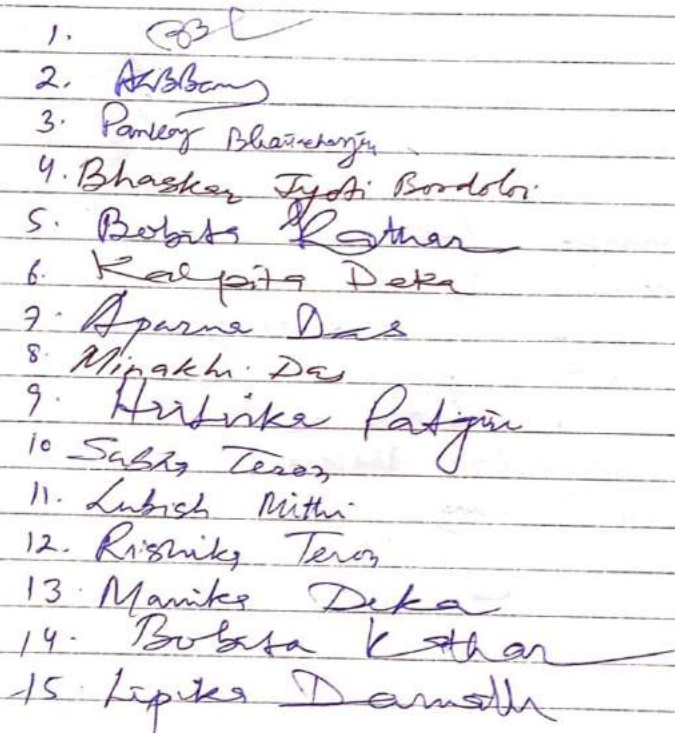 1.
2.
3. Pankaj Bhattacharjya
4. Bhaskar Jyoti Bordoloi
5. Bobita Kathar
6. Kalpita Deka
7. Aparna Das
8. Minakhi Das
9. Hritvika Patgiri
10 Teron
11. Lubish Mithi
12. Rishika Teron
13. Manika Deka
14. Bobita Kathar
15. Lipika